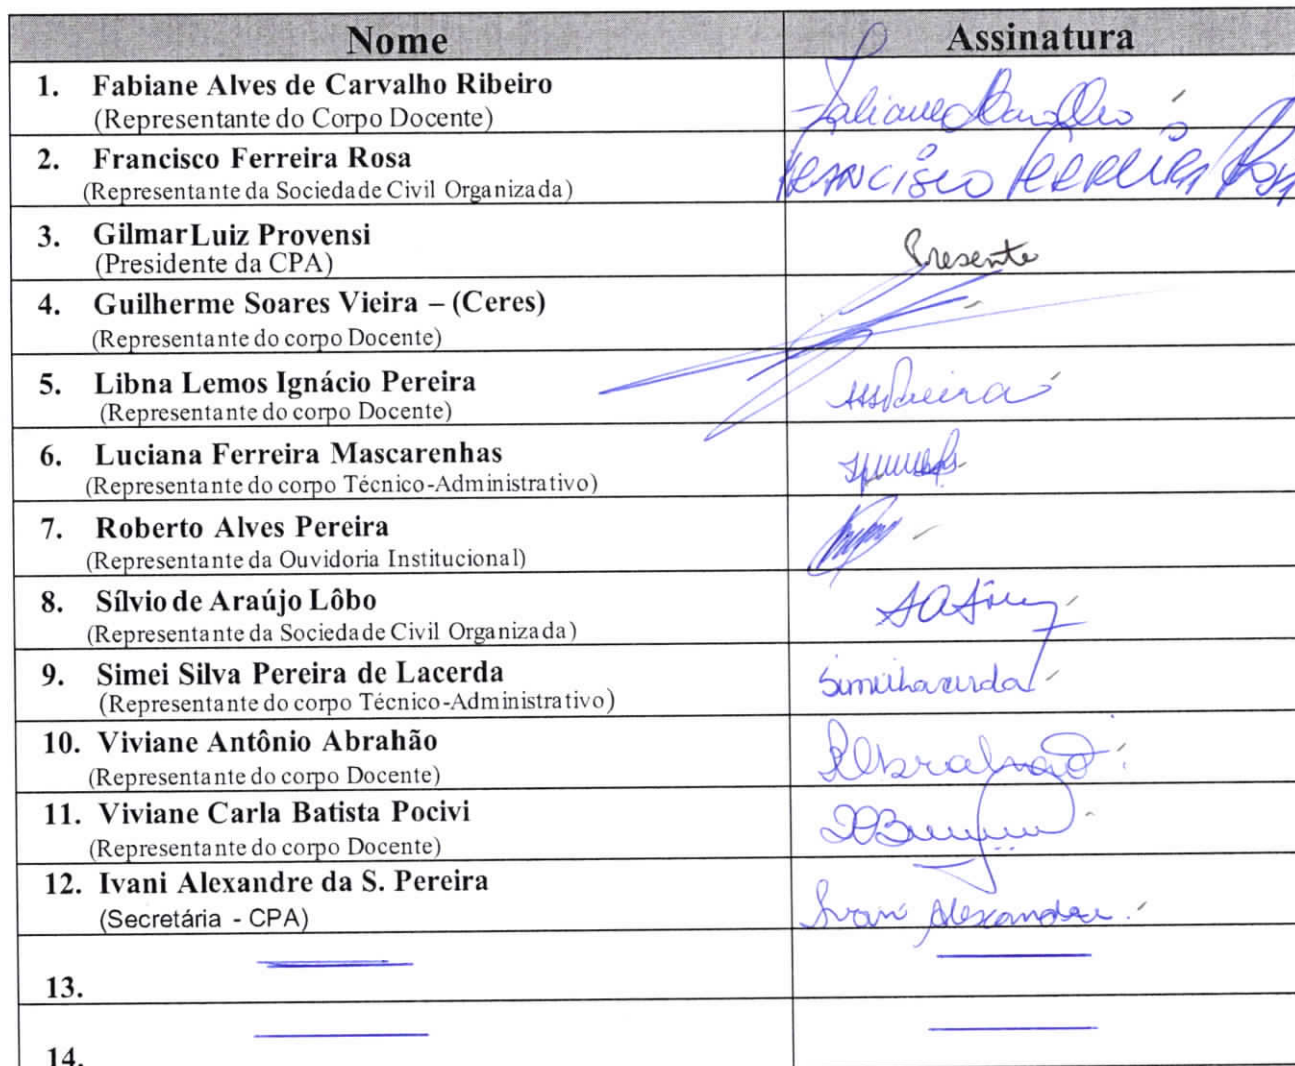 Nome Assinatura
1. Fabiane Alves de Carvalho Ribeiro
(Representante do Corpo Docente)
2. Francisco Ferreira Rosa Francisco Ferreira Rosa
(Representante da Sociedade Civil Organizada)
3. Gilmar Luiz Provensi Presente
(Presidente da CPA)
4. Guilherme Soares Vieira – (Ceres)
(Representante do corpo Docente)
5. Libna Lemos Ignácio Pereira
(Representante do corpo Docente)
6. Luciana Ferreira Mascarenhas
(Representante do corpo Técnico-Administrativo)
7. Roberto Alves Pereira
(Representante da Ouvidoria Institucional)
8. Sílvio de Araújo Lôbo
(Representante da Sociedade Civil Organizada)
9. Simei Silva Pereira de Lacerda
(Representante do corpo Técnico-Administrativo)
10. Viviane Antônio Abrahão
(Representante do corpo Docente)
11. Viviane Carla Batista Pocivi
(Representante do corpo Docente)
12. Ivani Alexandre da S. Pereira
(Secretária - CPA) Ivani Alexandre
13.
14.